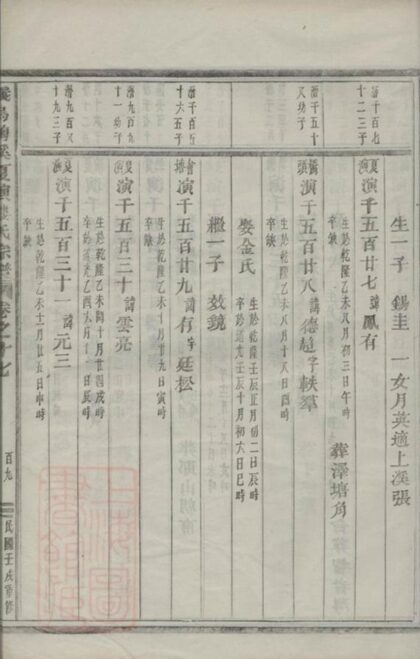 生一子 錫圭 一女月英適上溪張
潛千百七十二三子
夏演 演千五百廿七 諱鳳有
生於乾隆乙未八月初三日午時
卒缺
潛千五十又幼子
橋頭 演千五百廿八 諱德趠字軼羣
生於乾隆乙未八月十八日酉時
卒缺
葬澤塘角
娶金氏
生於乾隆壬辰五月初二日辰時
卒於道光壬辰十月初六日巳時
繼一子 效鏡
潛千百五十六五子
演千五百廿九 諱有 字廷松
生於乾隆乙未十月廿九日寅時
卒缺
潛九百八十一幼子
夏演 演千五百三十 諱雲亮
生於乾隆乙未閏十月廿四戌時
卒於道光乙酉六月十一日辰時
潛九百又十九三子
夏演 演千五百三十一 諱元三
生於乾隆乙未十一月廿五日申時
卒缺
夏演樓氏宗譜 卷之十七
百九
民國壬戌重修